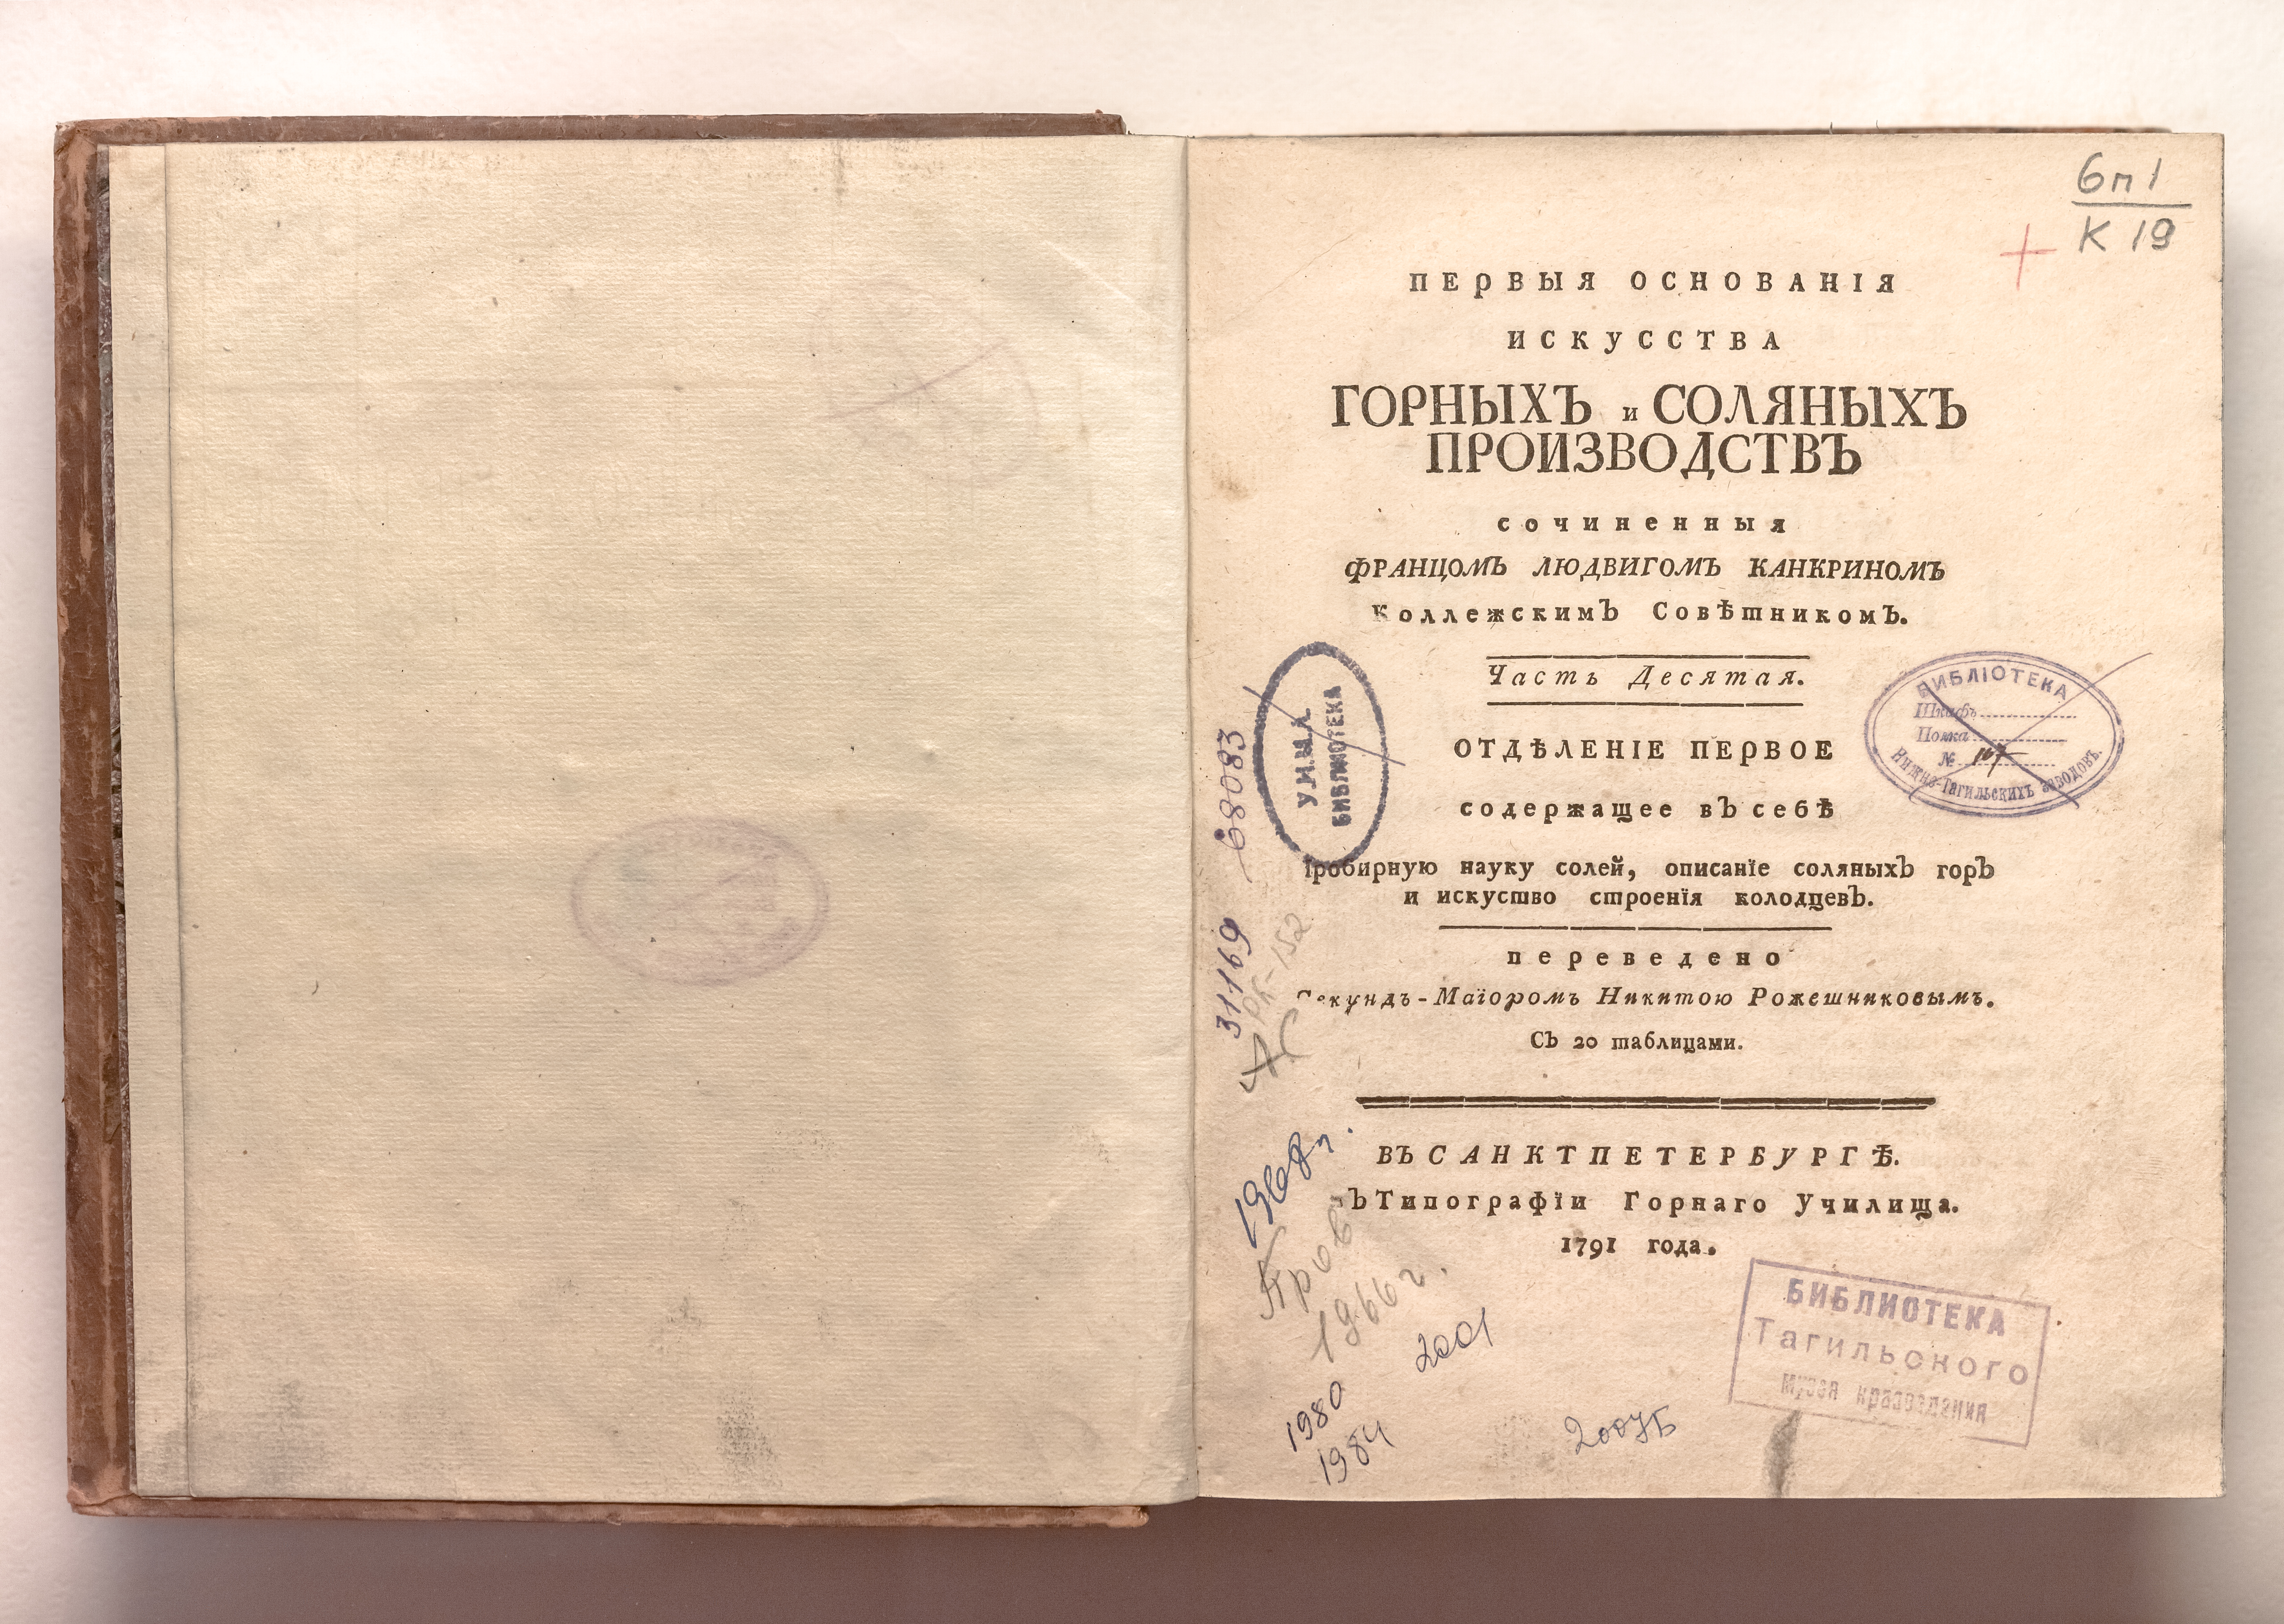 6п1
К 19
ПЕРВЫЯ ОСНОВАНІЯ
ИСКУССТВА
ГОРНЫХЪ и СОЛЯНЫХЪ
ПРОИЗВОДСТВЪ
сочиненныя
ФРАНЦОМЪ ЛЮДВИГОМЪ КАНКРИНОМЪ
Коллежскимъ Совѣтникомъ.
Часть Десятая.
ОТДѢЛЕНІЕ ПЕРВОЕ
содержащее въ себѣ
Пробирную науку солей, описанїе соляныхъ горъ
и искуство строенїя колодцевъ.
переведено
Секундъ-Маїоромъ Никитою Рожешниковымъ.
Съ 20 таблицами.
ВЪ САНКТПЕТЕРБУРГѢ.
въ Типографїи Горнаго Училища.
1791 года.
БИБЛІОТЕКА
Шкафъ
Полка
№ 107
Нижне-Тагильскихъ заводовъ.
БИБЛИОТЕКА
68083
31169
РК-152
1968г.
Пров
1966 г.
1980
1984
2001
2007Б
БИБЛИОТЕКА
Тагильского
музея краеведения